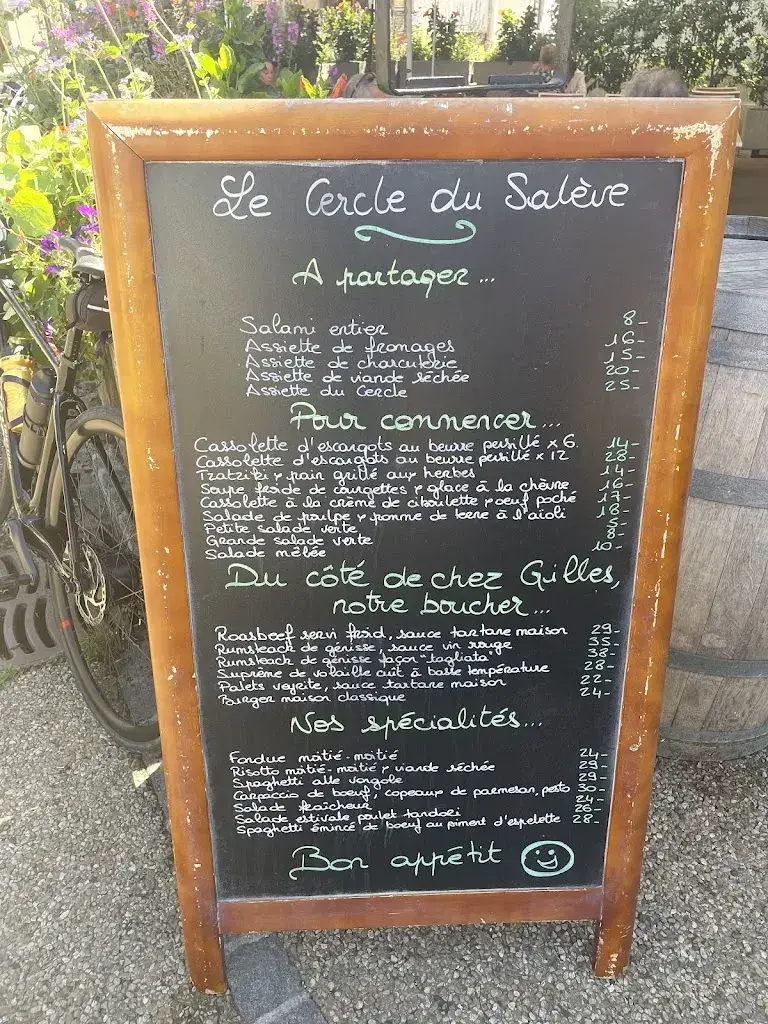 Le Cercle du Salève
A partager...
Salami entier 8-
Assiette de fromages 16-
Assiette de charcuterie 15-
Assiette de viande séchée 20-
Assiette du Cercle 25-
Pour commencer...
Cassolette d'escargots au beurre persillé x 6. 14-
Cassolette d'escargots au beurre persillé x 12 28-
Tzatziki & pain grillé aux herbes 14-
Soupe froide de courgettes & glace à la chèvre 16-
Cassolette à la crème de ciboulette & oeuf poché 17-
Salade de poulpe & pomme de terre à l'aïoli 18-
Petite salade verte 5-
Grande salade verte 8-
Salade mêlée 10-
Du côté de chez Gilles,
notre boucher...
Roasbeef servi froid, sauce tartare maison 29-
Rumsteack de génisse, sauce vin rouge 35-
Rumsteack de génisse façon "tagliata" 38-
Suprême de volaille cuit à basse température 28-
Palets veyrite, sauce tartare maison 22-
Burger maison classique 24-
Nos spécialités...
Fondue moitié-moitié 24-
Risotto moitié-moitié & viande séchée 29-
Spaghetti alle vongole 29-
Carpaccio de boeuf, copeaux de parmesan, pesto 30-
Salade fraîcheur 24-
Salade estivale poulet tandori 26-
Spaghetti émincé de boeuf au piment d'espelette 28-
Bon appétit